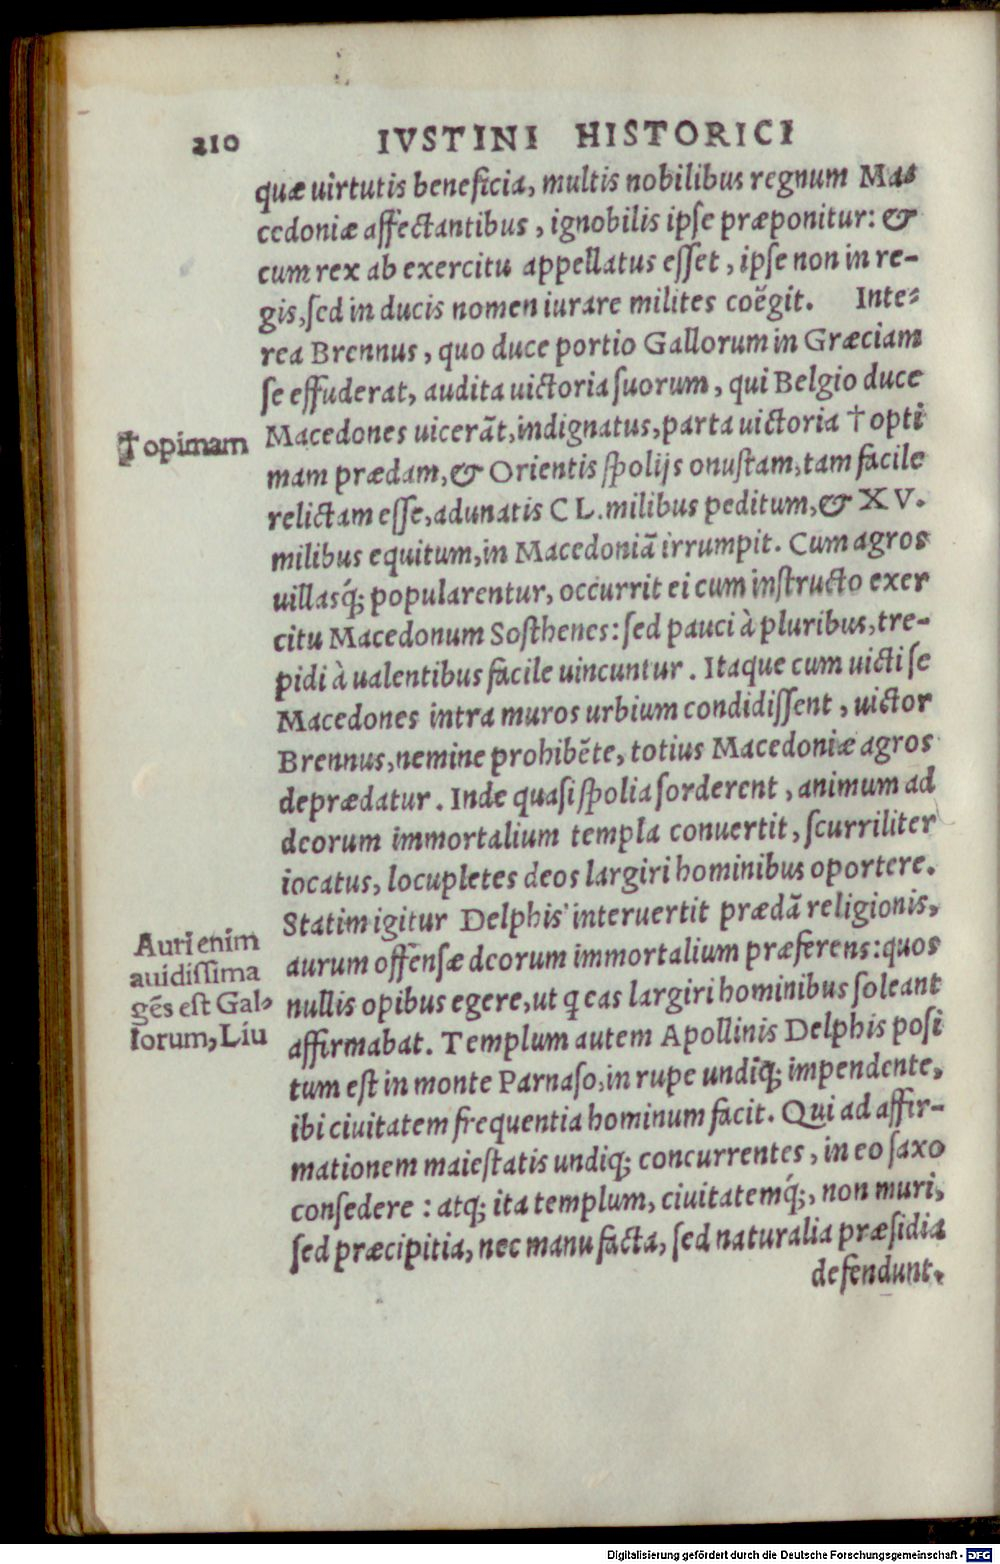 210 IVSTINI HISTORICI
quæ uirtutis beneficia, multis nobilibus regnum Ma-
cedoniæ affectantibus, ignobilis ipse præponitur: &
cum rex ab exercitu appellatus esset, ipse non in re-
gis, sed in ducis nomen iurare milites coëgit. Inte-
rea Brennus, quo duce portio Gallorum in Græciam
se effuderat, audita uictoria suorum, qui Belgio duce
Macedones uicerāt, indignatus, parta uictoria † opti
mam prædam, & Orientis spolijs onustam, tam facile
relictam esse, adunatis CL. milibus peditum, & XV.
milibus equitum, in Macedoniā irrumpit. Cum agros
uillasq́; popularentur, occurrit ei cum instructo exer
citu Macedonum Sosthenes: sed pauci à pluribus, tre-
pidi à ualentibus facile uincuntur. Itaque cum uicti se
Macedones intra muros urbium condidissent, uictor
Brennus, nemine prohibēte, totius Macedoniæ agros
deprædatur. Inde quasi spolia sorderent, animum ad
deorum immortalium templa conuertit, scurriliter
iocatus, locupletes deos largiri hominibus oportere.
Statim igitur Delphis interuertit prædā religionis,
aurum offensæ deorum immortalium præferens: quos
nullis opibus egere, ut q eas largiri hominibus soleant
affirmabat. Templum autem Apollinis Delphis posi
tum est in monte Parnaso, in rupe undiq; impendente,
ibi ciuitatem frequentia hominum facit. Qui ad affir-
mationem maiestatis undiq; concurrentes, in eo saxo
consedere: atq; ita templum, ciuitatemq́;, non muri,
sed præcipitia, nec manu facta, sed naturalia præsidia
defendunt.
† opimam
Auri enim
auidissima
gēs est Gal-
lorum, Liu
Digitalisierung gefördert durch die Deutsche Forschungsgemeinschaft - DFG